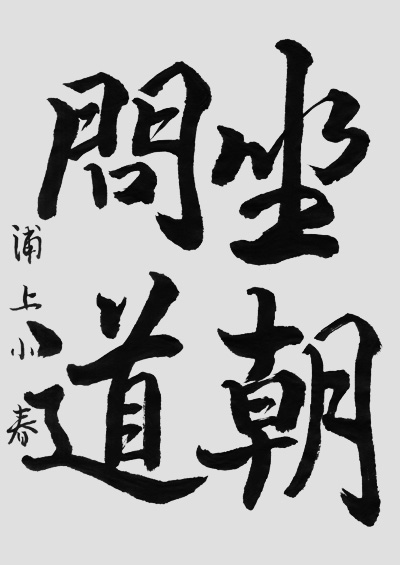 坐朝
問道
浦上小春